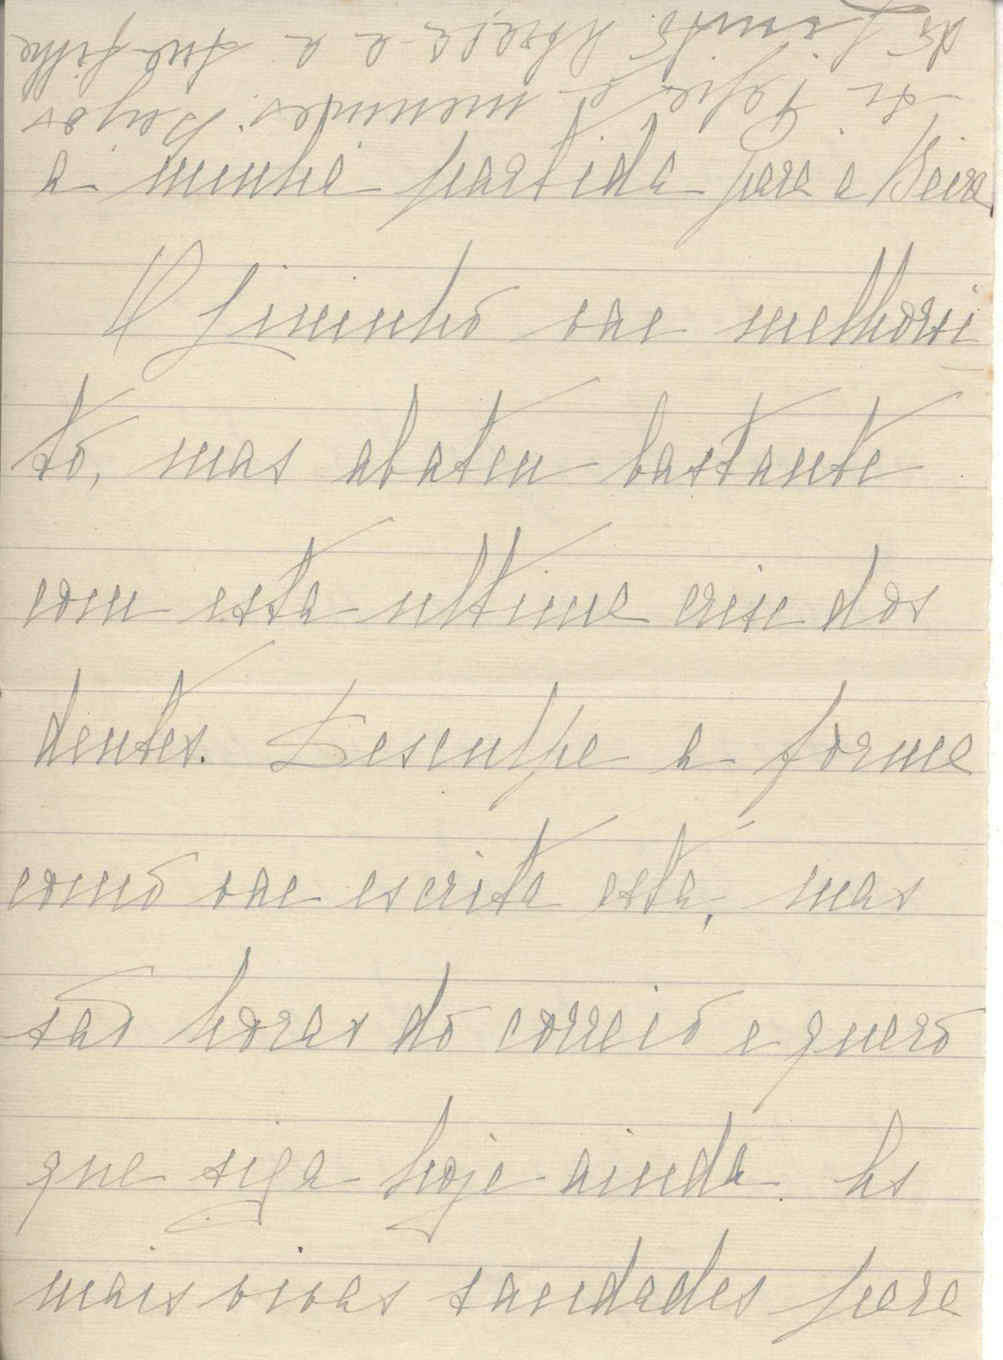 a minha partida para a Beira
O Lininho vae melhorsi
to, mas abateu bastante
com esta ultima crise dos
dentes. Desculpe a forma
como vae escrita esta, mas
são horas do correio e quero
que siga hoje ainda. As
mais vivas saudades para
si, Pepe e meninos. Beijos
do e a sua filha